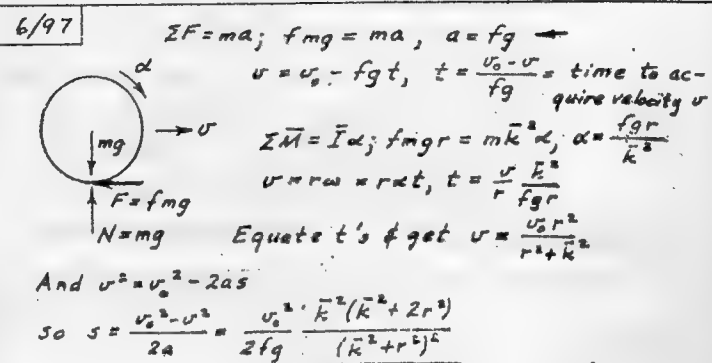 6/97
ΣF = ma; fmg = ma, a = fg ←
v = v₀ - fgt, t = (v₀ - v)/fg = time to ac-
quire velocity v
α
v
mg
F = fmg
N = mg
ΣM̄ = Īα; fmgr = mk̄²α, α = fgr/k̄²
v = rω = rαt, t = v/r k̄²/fgr
Equate t's & get v = v₀r²/(r² + k̄²)
And v² = v₀² - 2as
so s = (v₀² - v²)/2a = v₀²/2fg · k̄²(k̄² + 2r²)/(k̄² + r²)²